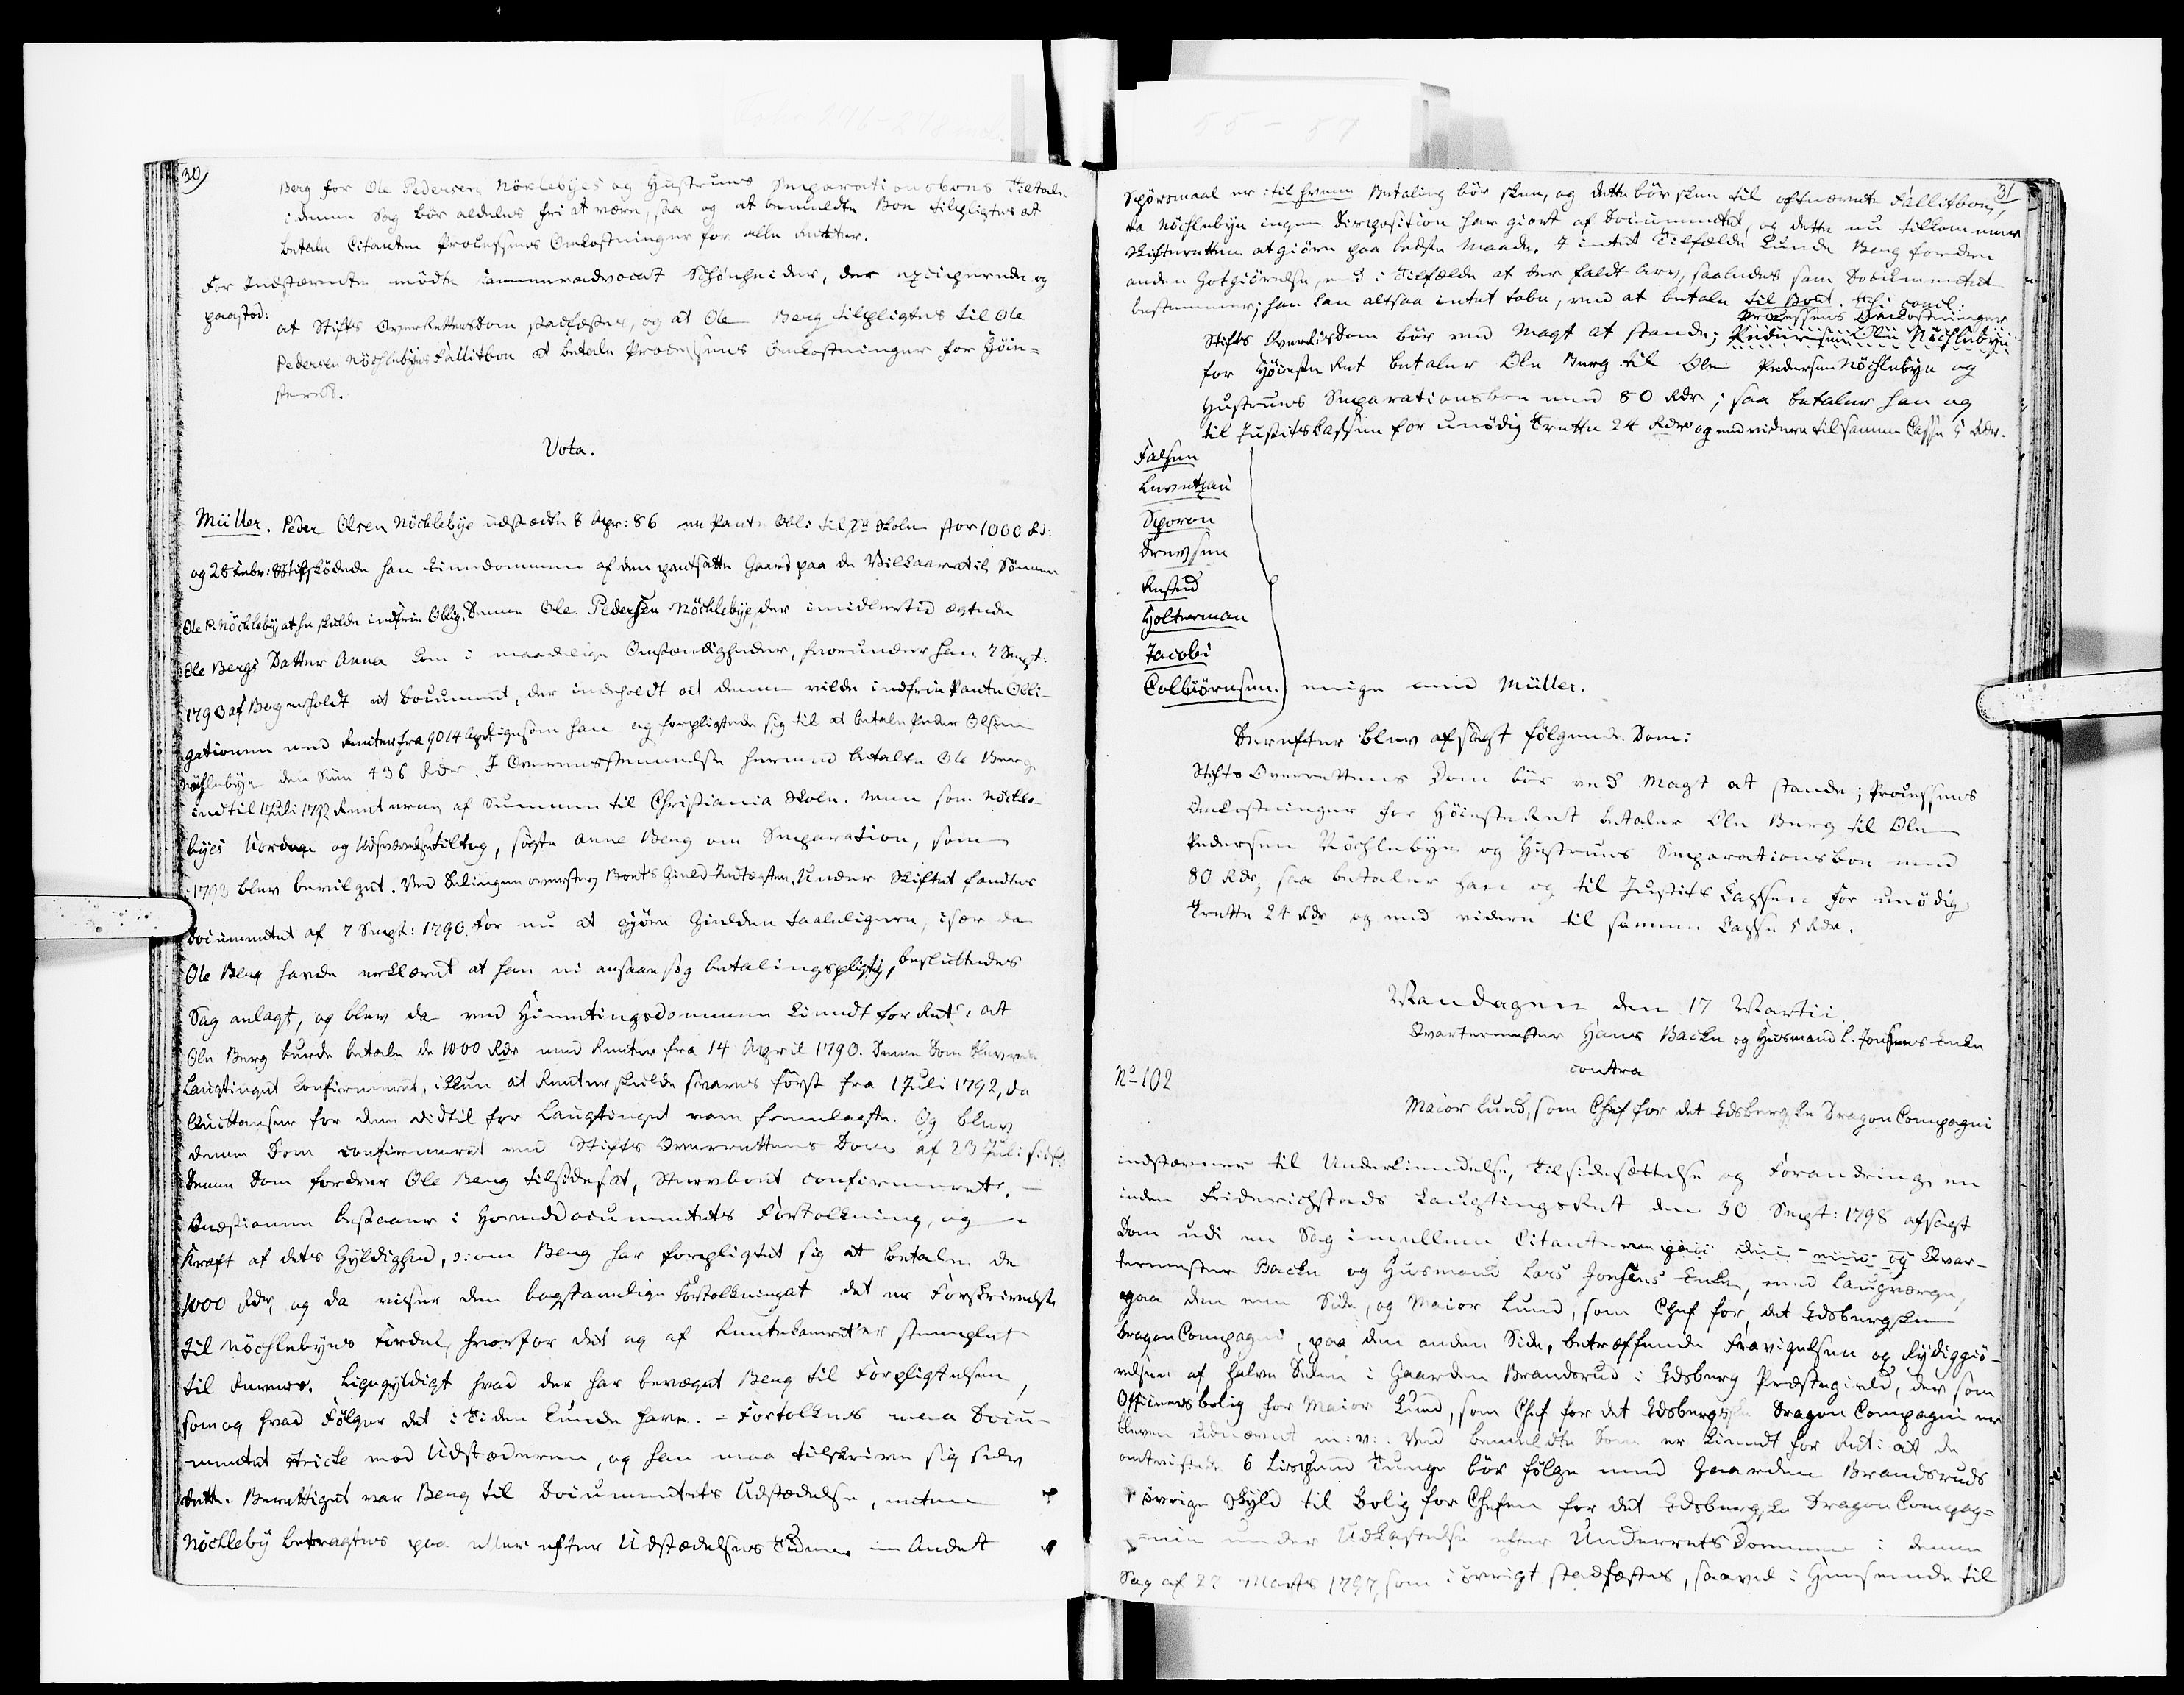 30,
Berg for Ole Pedersen Nöchlebÿes og Hustrues Separationsboes Tiltale
i denne Sag bör aldeles frie at være, saa og at bemeldte Boe tilpligtes at
betale Citanten Processens Omkostninger for alle Retter.
For Indstævnte mödte Kammeradvocat Schönheider, der exciperede og
paastod:
at Stifts Overrettens Dom stadfæstes, og at Ole Berg tilpligtes til Ole
Pedersen Nöchlebÿes Fallitboe at betale Processens Omkostninger for Höie-
steret.
Vota.
Müller. Peder Olsen Nöchlebÿe udstædte 8 Apr: 86 en Pante Obl: til Skole stor 1000 Rd:
og 28 Febr: skiödede han Eiendommen af den pantsatte Gaard paa de Vilkaar til Sönnen
Ole P. Nöchlebÿ, at he skulde indfrie Oblig. Denne Ole Pedersen Nöchlebÿe, der imidlertid ægtede
Ole Bergs Datter Anna kom i maadelige Omstændigheder, hvorunder han 7 Sept:
1790 af Berg erholdt et Document, der indeholdt at denne vilde indfrie Pante Obli-
gationen med Renter fra 90 14 Apr. ligesom han og forpligtede sig til at betale Peder Olsen
Nöchlebÿe den Sum 436 Rdr. I Overensstemmelse hermed betalte Ole Berg
indtil 1 Juli 1792 Renterne af Summen til Christiania Skole. Men som Nöchle-
bÿes Uorden og Udsvævelse tiltog, sögte Anne Berg om Separation, som
1793 blev bevilget. Ved Delingen oversteg Boets Gield Indtægten. Under Skiftet fandtes
Documentet af 7 Sept: 1790. For nu at giöre Gielden taaleligere, især da
Ole Berg havde erklæret at han ei ansaae sig betalingspligtig, besluttedes
Sag anlagt, og blev da ved Hiemtingsdommen kiendt for Ret: at
Ole Berg burde betale de 1000 Rdr med Renter fra 14 April 1790. Denne Dom blev ved
Laugtinget confirmeret, ikkun at Renter skulde svares först fra 1 Juli 1792, da
Quittanser for dem didtil for Laugtinget vare fremlagte. Og blev
denne Dom confirmeret ved Stifts Overrettens Dom af 23 Juli sidst.
Denne Dom fordrer Ole Berg tilsidesat, Stervboet confirmeret. —
Quæstionen bestaaer i Document Fortolkning, og
Kraft af dets Gyldighed, ɔ: om Berg har forpligtet sig at betale de
1000 Rdr, og da viser den bogstavelige Fortolkning at det er Forskrivelse
til Nöchlebÿes Fordel, hvorfor det og af Rentekamret er stemplet
til . Ligegyldigt hvad der har bevæget Berg til Forpligtelsen,
som og hvad Fölger det i Tiden kunde have. – Fortolkes maa Docu-
mentet stricte mod Udstæderen, og han maa tilskrive sig selv
dette. Berettiget var Berg til Documentets Udstædelse, enten
Nöchlebÿ betragtes paa eller efter Udstædelsens Tiden. – Andet
31
Spörsmaal er: til hvem Betaling bör skee, og dette bör skee til oftnævnte Fallitboe,
da Nöchlebÿe ingen Disposition har giort af Documentet, og dette nu tilkommer
Skifteretten at giöre paa bedste Maade. I intet Tilfælde kunde Berg fordre
anden Gotgiörelse, end i Tilfælde at der faldt Arv, saaledes som Documentet
bestemmer; han kan altsaa intet tabe, ved at betale til Boet. Thi concl:
Processens Omkostninger
Stifts Overr: Dom bör ved Magt at stande; Pedersen Ole Nöchlebÿe
for Höieste Ret betaler Ole Berg til Ole Pedersen Nöchlebÿe og
Hustrues Separationsboe med 80 Rdr; saa betaler han og
til Justitskassen for unödig Trætte 24 Rdr og end videre til samme Casse 5 Rdr.
Falsen
Levetzau
Sporon
Drewsen
Holterman
Jacobi
Colbiörnsen. enige med Müller.
Derefter blev afsagt fölgende Dom:
Stifts Overrettens Dom bör ved Magt at stande; Processens
Omkostninger for Höieste Ret betaler Ole Berg til Ole
Pedersen Nöchlebÿe og Hustrues Separationsboe med
80 Rdr; saa betaler han og til Justits Cassen for unödig
Trætte 24 Rdr og end videre til samme Casse 5 Rdr.
Mandagen den 17 Martii
Qvartermester Hans Backe og Huusmand L. Jonsens Enke
contra
No 102
Maior Lund, som Chef for det Edsbergske Dragon Compagni
indstævner til Underkiendelse, Tilsidesættelse og Forandring en
inden Friderichstads Laugtings Ret den 30 Sept: 1798 afsagt
Dom udi en Sag imellem Citanterne Qvar-
termester Backe og Huusmand Lars Jonsens Enke, med Laugværge,
paa den ene Side, og Maior Lund, som Chef for det Edsbergske
Dragon Compagni, paa den anden Side, betræffende Fravigelsen og Rydiggiö-
relsen af halve Delen i Gaarden Brandsrud i Edsberg Præstegield, der som
Officiersbolig for Maior Lund, som Chef for det Edsbergske Dragon Compagni er
bleven udnævnt m: v:. Ved bemeldte Dom er kiendt for Ret: at de
omtvistede 6 Lispund Tunge bör fölge med Gaarden Brandsruds
övrige Skyld til Bolig for Chefen for det Edsbergske Dragon Compag-
=nie under Udkastelse efter Underrets Dommen i denne
Sag af 27 Marts 1797, som i övrigt stadfæstes, saavel i Henseende til